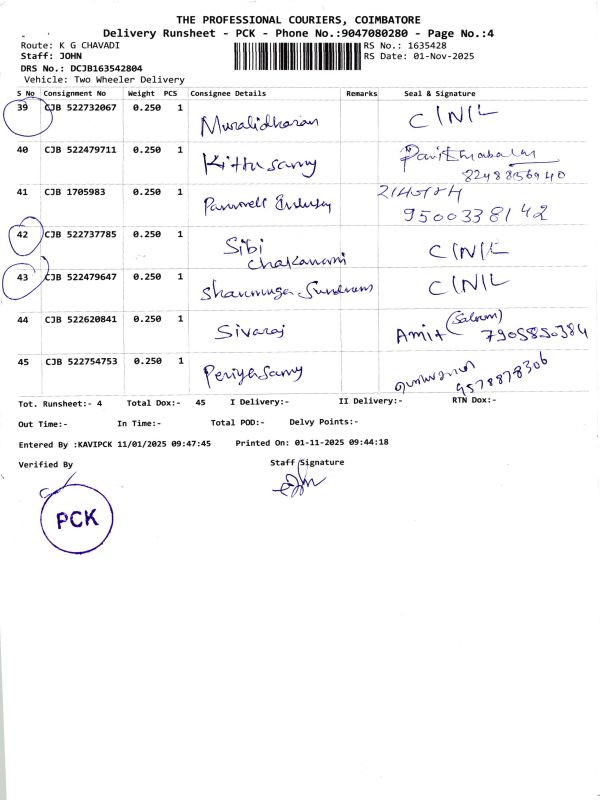 THE PROFESSIONAL COURIERS, COIMBATORE
Delivery Runsheet - PCK - Phone No.:9047080280 - Page No.:4
Route: K G CHAVADI RS No.: 1635428
Staff: JOHN RS Date: 01-Nov-2025
DRS No.: DCJB163542804
Vehicle: Two Wheeler Delivery
S No Consignment No Weight PCS Consignee Details Remarks Seal & Signature
39 CJB 522732067 0.250 1 Muralidharan C/N/L
40 CJB 522479711 0.250 1 Kittusamy
8248856940
41 CJB 1705983 0.250 1
9500338142
42 CJB 522737785 0.250 1 Sibi C/N/L
Chakaravarni
43 CJB 522479647 0.250 1 Shanmuga Sundram C/N/L
44 CJB 522620841 0.250 1 Sivaraj Amit 7905850384
45 CJB 522754753 0.250 1 Periyasamy
9578878306
Tot. Runsheet:- 4 Total Dox:- 45 I Delivery:- II Delivery:- RTN Dox:-
Out Time:- In Time:- Total POD:- Delvy Points:-
Entered By :KAVIPCK 11/01/2025 09:47:45 Printed On: 01-11-2025 09:44:18
Verified By Staff Signature
PCK